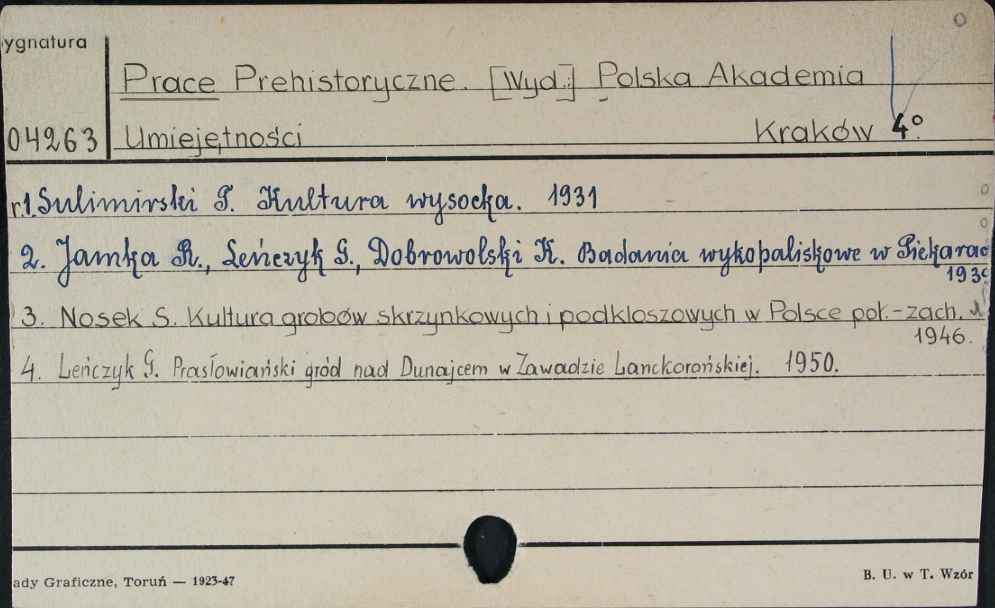 ygnatura
Prace Prehistoryczne. [Wyd.:] Polska Akademia
04263 Umiejętności Kraków 4°
r1. Sulimirski T. Kultura wysocka. 1931
2. Jamka R., Leńczyk G., Dobrowolski K. Badania wykopaliskowe w Piekarac
193
3. Nosek S. Kultura grobów skrzynkowych i podkloszowych w Polsce poł.-zach.
1946.
4. Leńczyk G. Prasłowiański gród nad Dunajcem w Zawadzie Lanckorońskiej. 1950.
ady Graficzne, Toruń — 1923-47
B. U. w T. Wzór